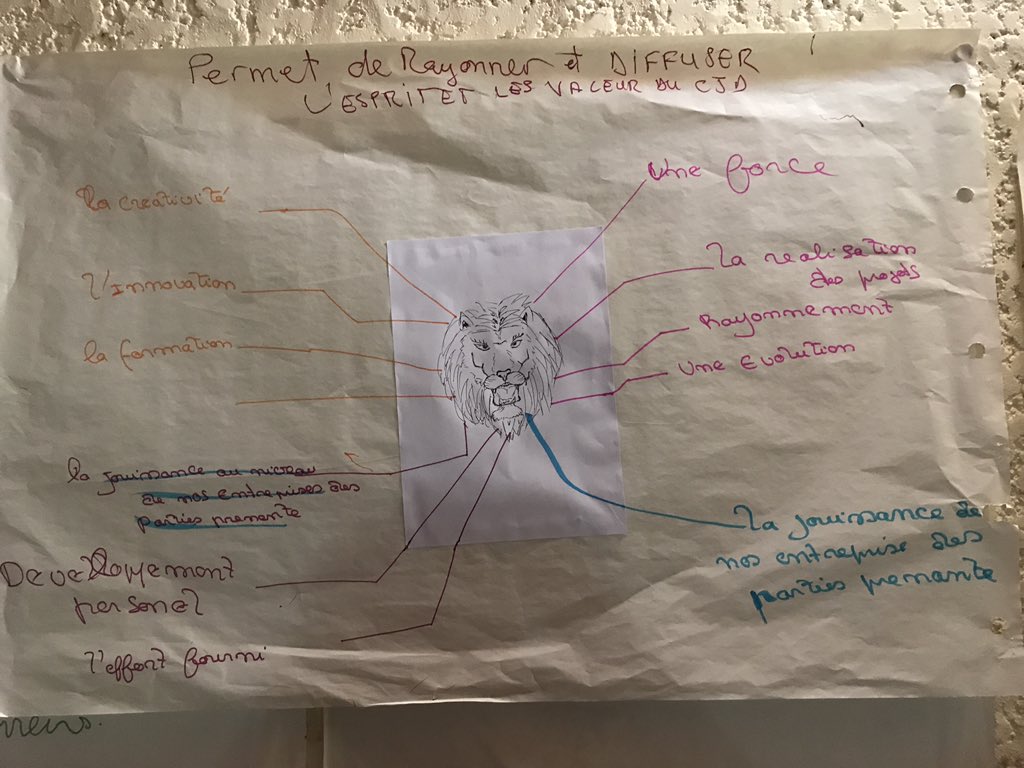 Permet de Rayonner et DIFFUSER
L'ESPRIT ET LES VALEUR DU CJD
la creativité
l'Innovation
la formation
la jouissance au niveau
de nos entreprises des
parties prenante
Developpement
personel
l'effort fourni
Une force
La realisation
des projets
Rayonnement
Une Evolution
La jouissance de
nos entreprise des
parties prenante